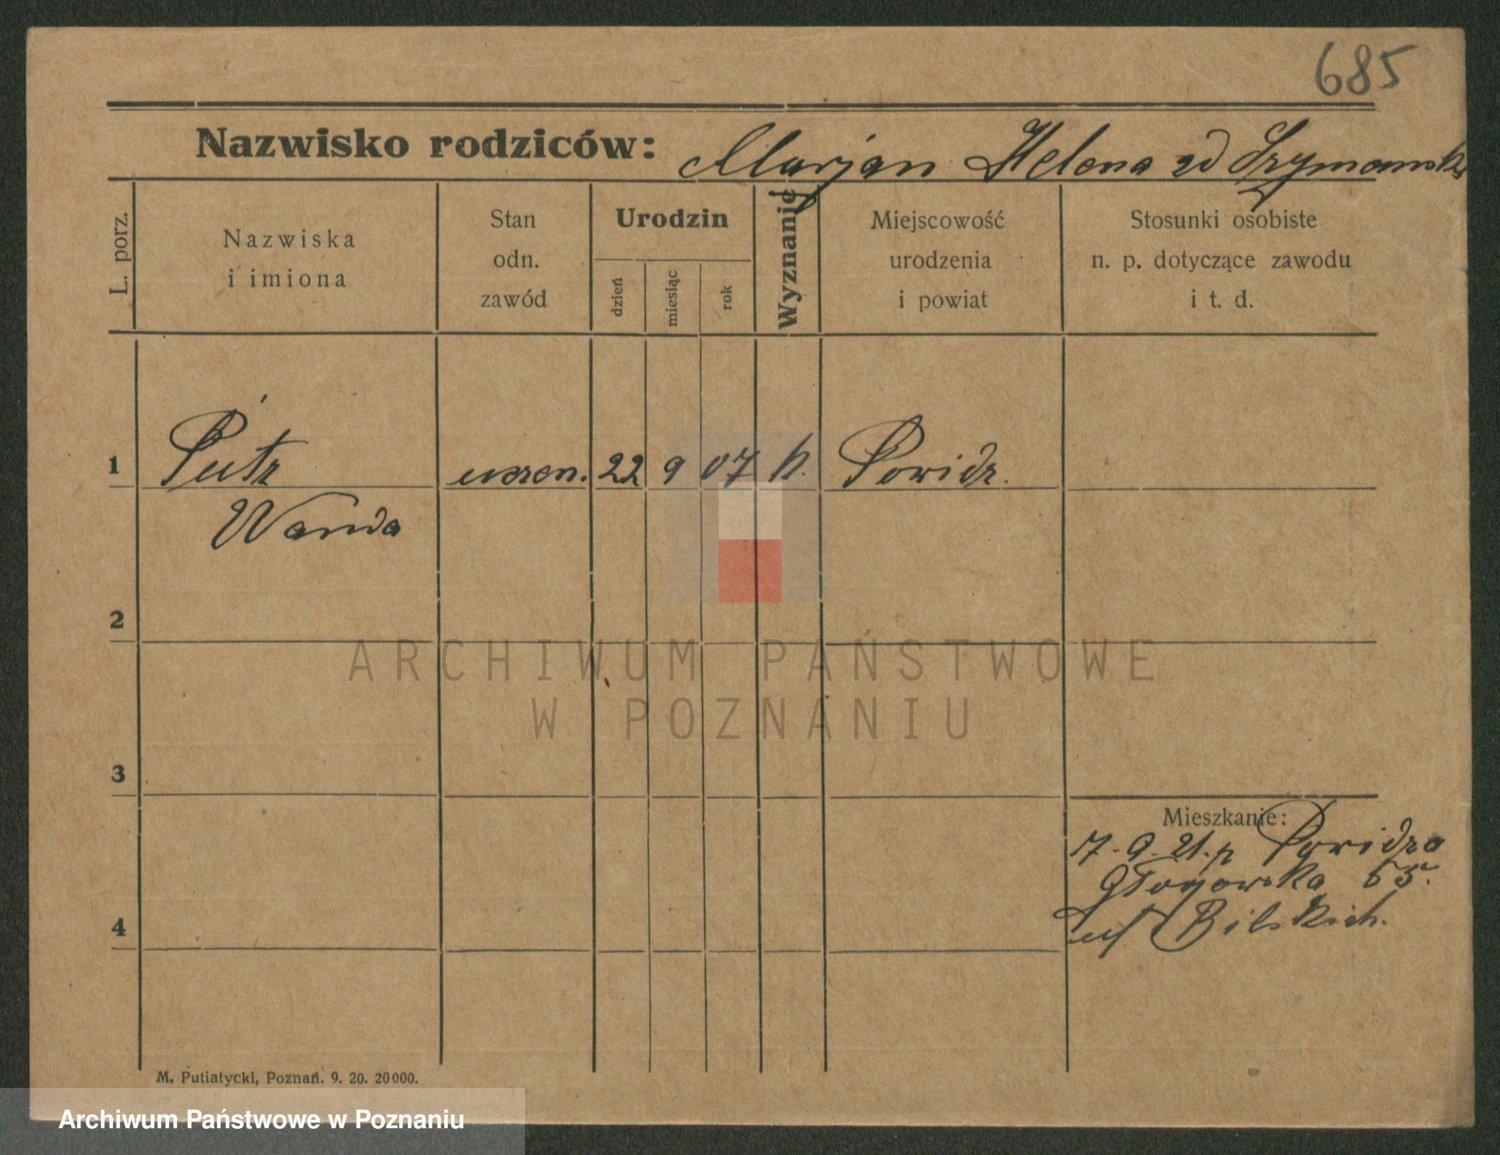 685
Nazwisko rodziców: Marjan Helena zd Szymanowska
L. porz.
Nazwiska
i imiona
Stan
odn.
zawód
Urodzin
dzień
miesiąc
rok
Wyznanie
Miejscowość
urodzenia
i powiat
Stosunki osobiste
n. p. dotyczące zawodu
i t. d.
1 uczen. 22 9 07 k. Powidz.
Wanda
2
3
Mieszkanie:
7. 9. 21. z Powidza
Głogowska
4
Bilskich.
M. Putiatycki, Poznań. 9. 20. 20000.
ARCHIWUM PAŃSTWOWE
W POZNANIU
Archiwum Państwowe w Poznaniu